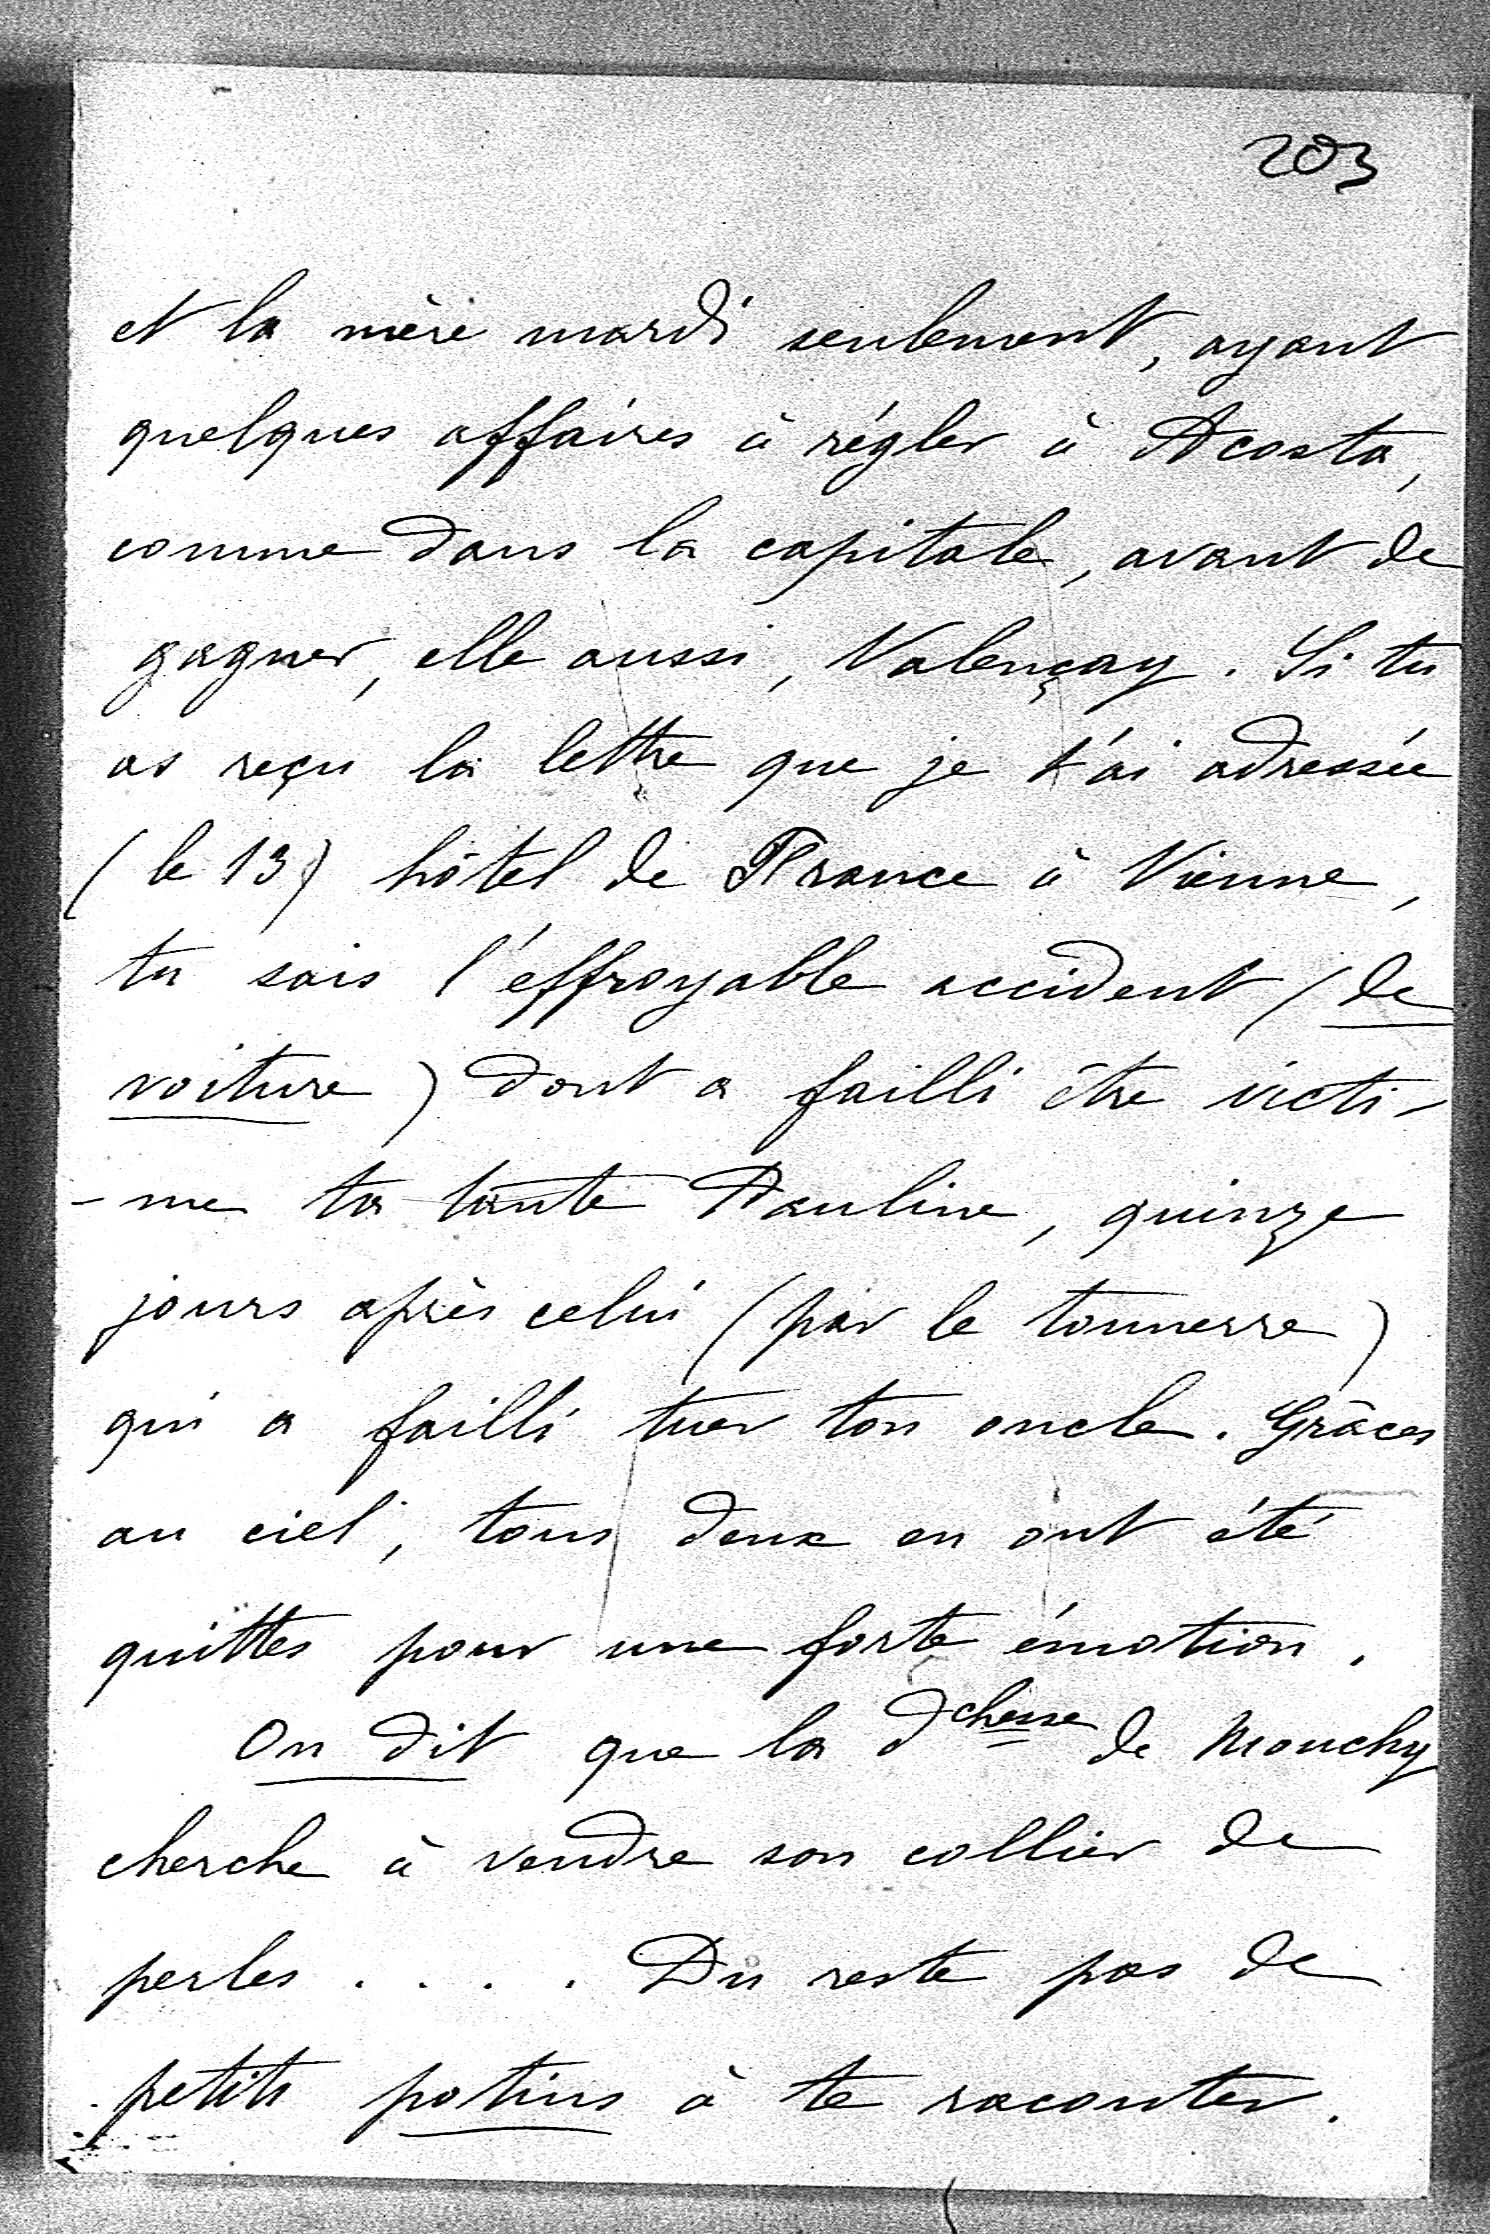 203
et la mère mardi seulement, ayant
quelques affaires à régler à Acosta,
comme dans la capitale, avant de
gagner, elle aussi, Valençay. Si tu
as reçu la lettre que je t'ai adressée
(le 13) hôtel de France à Vienne,
tu sais l'effroyable accident (de
voiture) dont a failli être victi-
-me ta tante Pauline, quinze
jours après celui (par le tonnerre)
qui a failli tuer ton oncle. Grâces
au ciel, tous deux en ont été
quittes pour une forte émotion.
On dit que la dchesse de Mouchy
cherche à vendre son collier de
perles .... Du reste pas de
petits potins à te raconter.